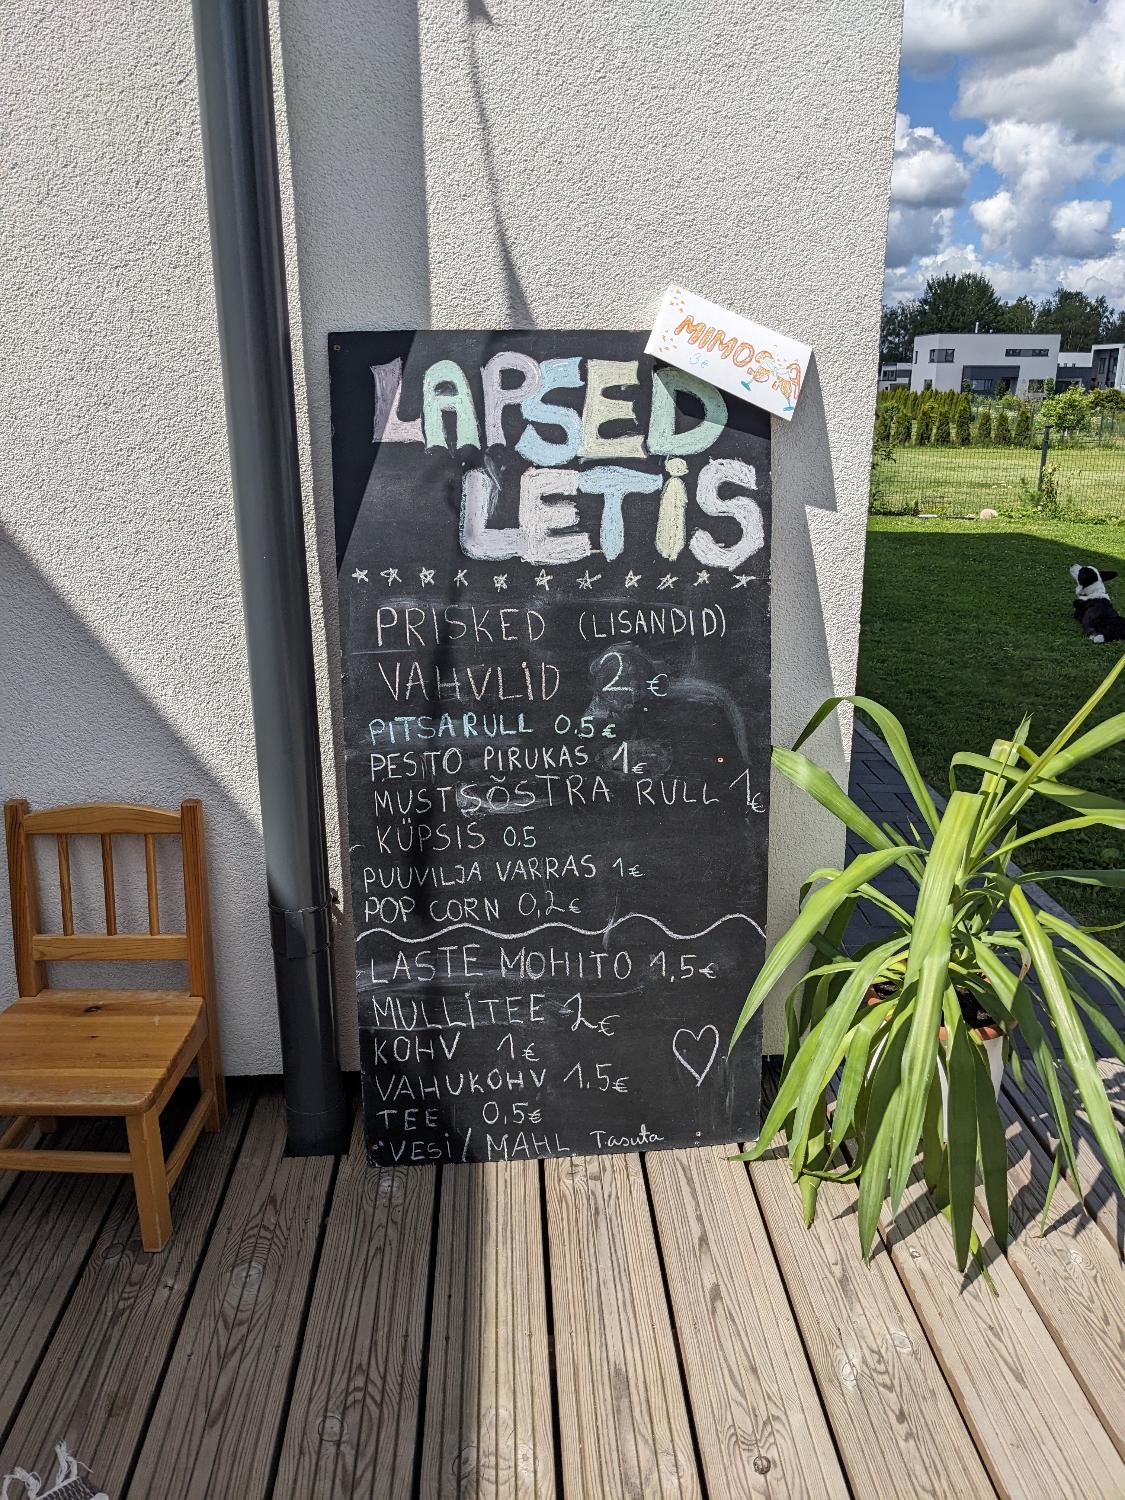 MIMOSA
3€
LAPSED
LETIS
PRISKED (LISANDID)
VAHVLID 2 €
PITSARULL 0.5€
PESTO PIRUKAS 1€
MUSTSÕSTRA RULL 1€
KÜPSIS 0,5
PUUVILJA VARRAS 1€
POP CORN 0,2€
LASTE MOHITO 1,5€
MULLITEE 2€
KOHV 1€
VAHUKOHV 1,5€
TEE 0,5€
VESI/MAHL Tasuta